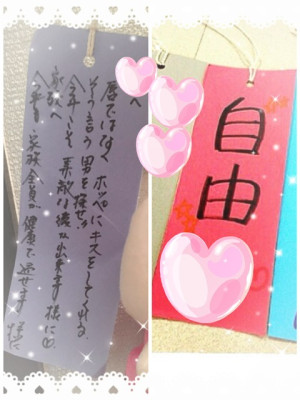 へ
唇ではなく ホッペにキスをしてくれる
その言う 男を探せ!!
今年こそ 素敵な様が出来ます様に∞
家族へ
今年も 家族全員が健康で過せます
様に
自由